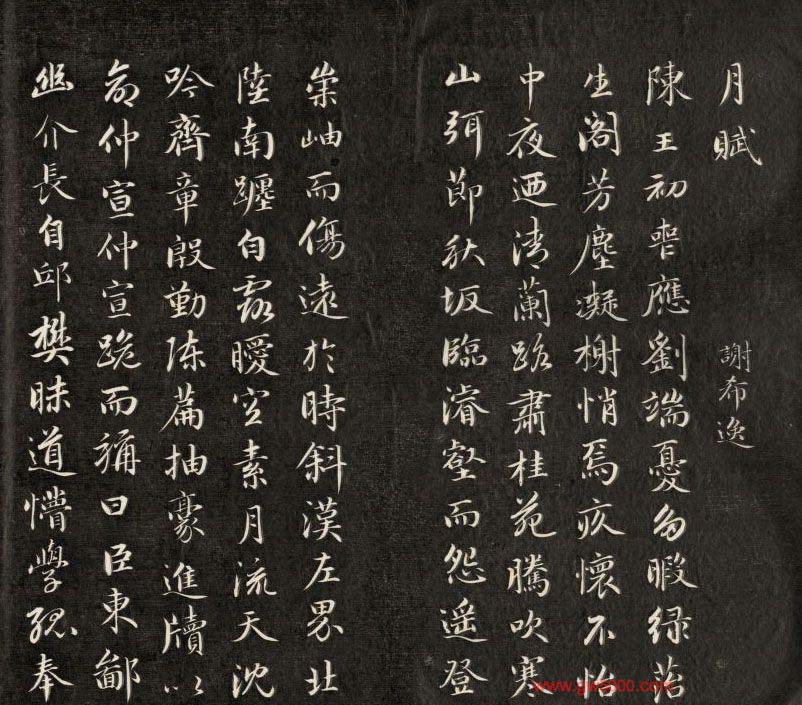 月賦
謝希逸
陳王初喪應劉端憂多暇綠苔
生閣芳塵凝榭悄焉疚懷不怡
中夜迺清蘭路肅桂苑騰吹寒
山弭節秋坂臨濬壑而怨遥登
崇岫而傷遠於時斜漢左界北
陸南躔白露曖空素月流天沈
吟齊章殷勤陳篇抽豪進牘以
命仲宣仲宣跪而稱曰臣東鄙
幽介長自邱樊昧道懵學孤奉